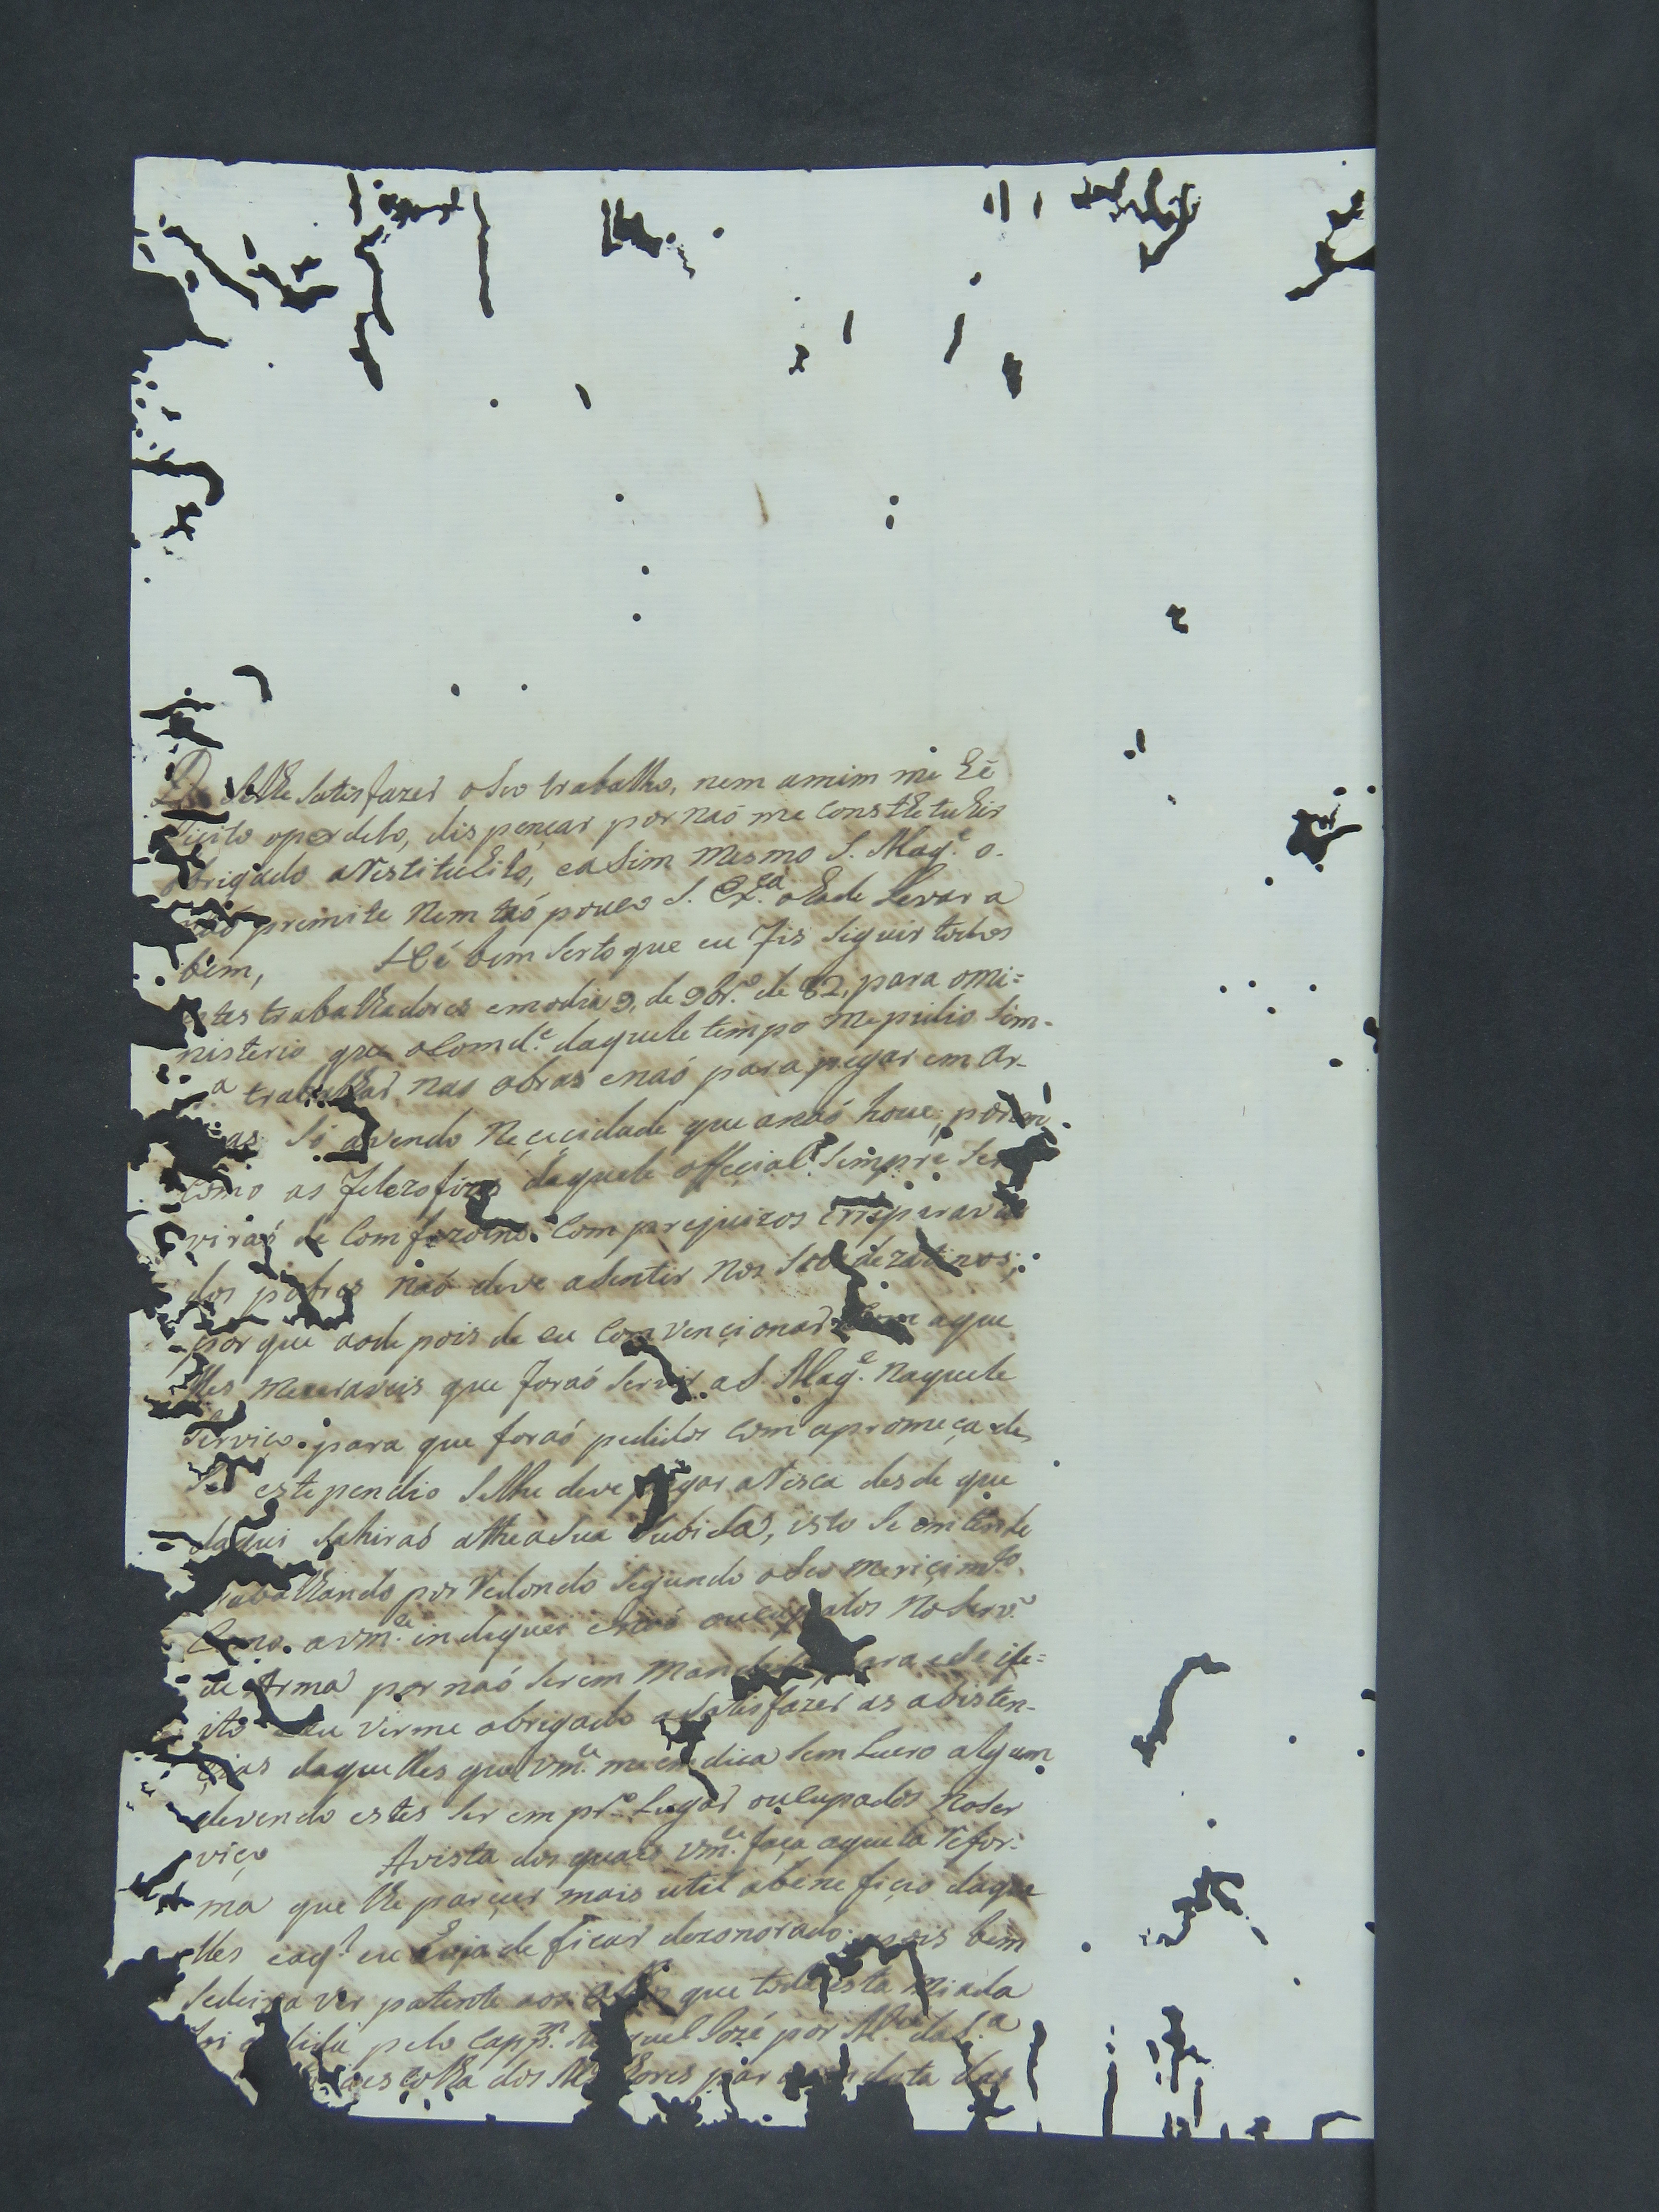 De selhe Satisfazer o Seo trabalho, nem amim me hé
Licito o perdelo, dispençar por naó me constetuhir
obrigado aRestituhilo, eaSim mesmo S. Mag.e o
naó premite Nem taó pouco S. Ex.ca o hade Levar a
bem, Hé bem Serto que eu fis Siguir todos
estes trabalhadores emodia 9, de 9br.o de 82, para omi=
nisterio que oComd.e daquele tempo mepidio Sim-
a trabalhar nas obras enaó para pegar em Ar-
as Só avendo Neçecidade que anaó houe; porem
Como as felezofias daquele offecial Sempre Ser
viraó de Com
dos pobres Naó deve aSentir Nos Seos dezatinos;
por que aode pois de eu Com vençionar Com aque
lles mezeraveis que foraó Servir a S. Mag.e Naquele
Serviço para que foraó pedidos Com apromeça de
Ser estependio Selhe deve pagar aRisca desde que
daqui Sahiraó athe aSua Subida, isto Se entende
trabalhando por Redondo Segundo oSeo meriçim.to
Como a vm.ce indaquei estaó oucupados NoServ.o
de Arma por naó Serem Mandados para
ito eeu virme obrigado a Satisfazer as asisten-
çias daquelles que vm.ce me emdica Sem Lucro algum
devendo estes Ser em pr.o Lugar oucupados NoSer
viço Avista dos quais vm.ce faça aquela Refor-
ma que lhe pareçer mais util abenefiçio daque
lles eaq.l eu haja de ficar dezonorado; pois bem
Sedeixa ver patente aos que toda esta
foi pedida pelo Capp.m Miguel Jozé por
escolha dos Milhores por